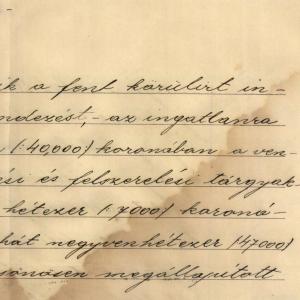 ik a fent körülirt in-
ndezést,- az ingatlanra
(:40,000:) koronában a ven-
ési és felszerelési tárgyak
hétezer (:7000:) koroná-
hát negyvenhétezer (47000)
sönösen megállapitott